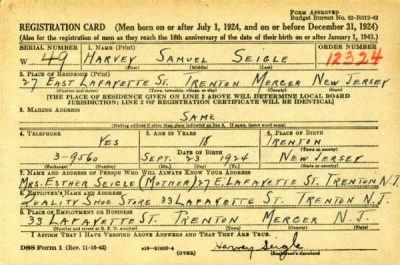 FORM APPROVED
Budget Bureau No. 33-R012-42
REGISTRATION CARD (Men born on or after July 1, 1924, and on or before December 31, 1924)
(Also for the registration of men as they reach the 18th anniversary of the date of their birth on or after January 1, 1943.)
SERIAL NUMBER 1. NAME (Print) ORDER NUMBER
W 49 HARVEY SAMUEL SEIGLE 12324
2. PLACE OF RESIDENCE (Print)
27 EAST LAFAYETTE ST. TRENTON MERCER NEW JERSEY
[THE PLACE OF RESIDENCE GIVEN ON LINE 2 ABOVE WILL DETERMINE LOCAL BOARD
JURISDICTION; LINE 2 OF REGISTRATION CERTIFICATE WILL BE IDENTICAL]
3. MAILING ADDRESS
SAME
4. TELEPHONE 5. AGE IN YEARS 6. PLACE OF BIRTH
YES 18 TRENTON
DATE OF BIRTH
3-9560 SEPT. 23 1924 NEW JERSEY
7. NAME AND ADDRESS OF PERSON WHO WILL ALWAYS KNOW YOUR ADDRESS
MRS. ESTHER SEIGLE (MOTHER) 27 E. LAFAYETTE ST. TRENTON N.J.
8. EMPLOYER'S NAME AND ADDRESS
QUALITY SHOE STORE 33 LAFAYETTE ST. TRENTON N.J.
9. PLACE OF EMPLOYMENT OR BUSINESS
33 LAFAYETTE ST. TRENTON MERCER N.J.
I AFFIRM THAT I HAVE VERIFIED ABOVE ANSWERS AND THAT THEY ARE TRUE.
DSS Form 1 (Rev. 11-16-42) (OVER) Harvey Seigle